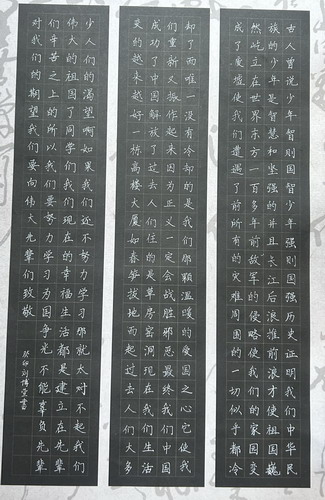 古人曾说少年智则国智少年强则国强历史证明我们中华民
族的少年是智慧和坚强的并且长江后浪推前浪才使祖国巍
然屹立在世界东方一百多年前敌军的侵略使我们的家园变
成了废墟使我们遭遇了前所有的灾难周围的一切似乎都冷
却了而唯一没有冷却的是我们那颗温暖的爱国之心它使我
们重新又振作起来因为正义一定会战胜邪恶最终我们中国
成功了中国解放了过去人们住的是草房窑洞现在我们生活
变的越来越好一栋高楼大厦如春笋拔地而起过去人们大多
少人们的渴望啊如果我们还不努力学习那就太对不起我们
伟大的祖国了同学们我们现在的幸福生活都是建立在先辈
们辛苦之上的所以我们要努力学习为国争光不能辜负先辈
对我们的期望我们要向伟大先辈们致敬